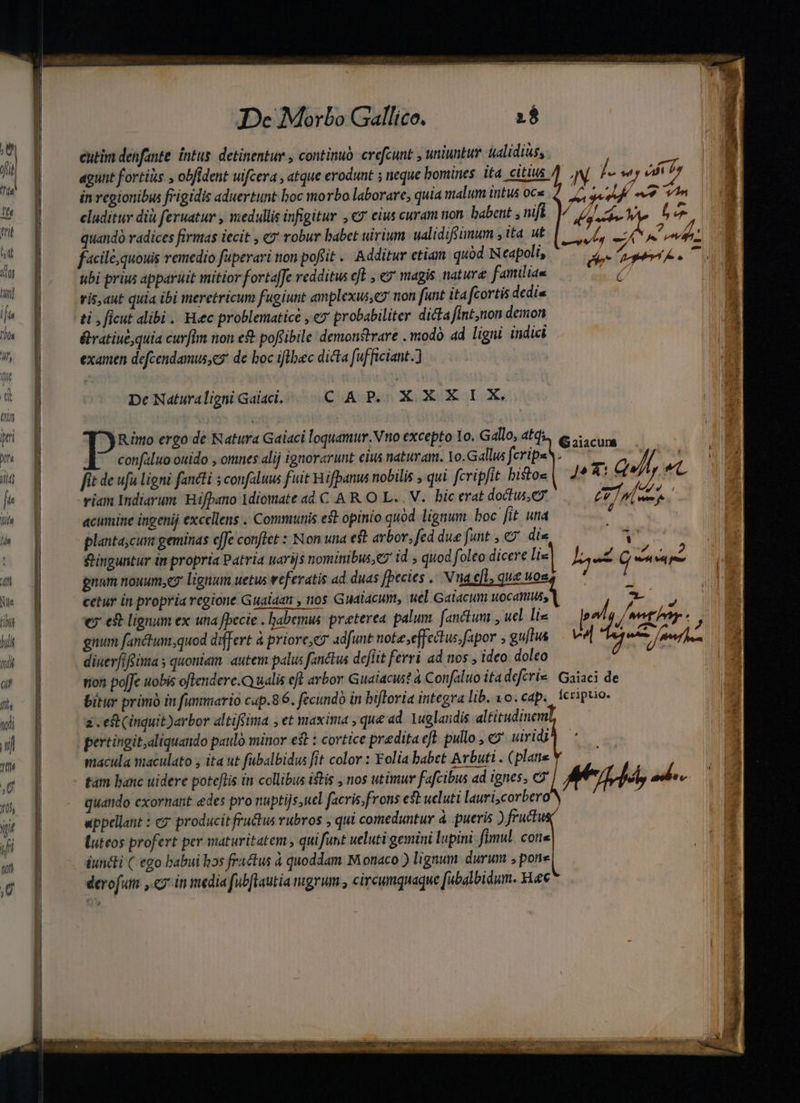 De Morbo Gallico. 28
cutim densante intus detinentur, continuò crescunt, uniuntur ualidius,
agunt fortius, obsident uiscera, atque erodunt; neque homines ita citius
in regionibus frigidis aduertunt hoc morbo laborare, quia malum intus oc=
cluditur diù seruatur, medullis infigitur, & eius curam non habent, nisi
quandò radices firmas iecit, & robur habet uirium ualidissimum, ita ut
facilè, quouis remedio superari non possit. Additur etiam quòd Neapoli,
ubi prius apparuit mitior fortasse redditus est, & magis naturæ familia=
ris, aut quia ibi meretricum fugiunt amplexus, & non sunt ita scortis dedi=
ti, sicut alibi. Hæc problematicè, & probabiliter dicta sint, non demon
stratiuè, quia cursim non est possibile demonstrare. modò ad ligni indici
examen descendamus, & de hoc isthæc dicta sufficiant.]
De Natura ligni Gaiaci. CAP. XXXIX.
PRimo ergo de Natura Gaiaci loquamur. Vno excepto Io. Gallo, atq;
consaluo ouido, omnes alij ignorarunt eius naturam. Io. Gallus scrips=
sit de usu ligni sancti; consaluus fuit Hispanus nobilis, qui scripsit histo=
riam Indiarum Hispano Idiomate ad CAROL. V. hic erat doctus, &
acumine ingenij excellens. Communis est opinio quòd lignum hoc sit una
planta, cum geminas esse constet: Non una est arbor, sed duæ sunt, & di=
stinguntur in propria Patria uarijs nominibus, & id, quod soleo dicere li=
gnum nouum, & lignum uetus referatis ad duas species. Vna est, quæ uo=
cetur in propria regione Guaiaan, nos Guaiacum, uel Gaiacum uocamus,
& est lignum ex una specie. habemus præterea palum sanctum, uel li=
gnum sanctum, quod differt à priore, & adsunt notæ, effectus, sapor, gustus
diuersissima; quoniam autem palus sanctus desiit ferri ad nos, ideo doleo
non posse uobis ostendere. Qualis est arbor Guaiacus? à Consaluo ita descri=
bitur primò in summario cap. 86. secundò in historia integra lib. 10. cap.
2. est (inquit) arbor altissima, et maxima, quæ ad Iuglandis altitudinem
pertingit, aliquando paulò minor est: cortice prædita est pullo, & uiridi
macula maculato, ita ut subalbidus sit color: Folia habet Arbuti. (plane
tam hanc uidere potestis in collibus istis, nos utimur fascibus ad ignes, &
quando exornant ædes pro nuptijs, uel sacris, frons est ueluti lauri, corbero
appellant: & producit fructus rubros, qui comeduntur à pueris) fructus
luteos profert per maturitatem, qui sunt ueluti gemini lupini simul con=
iuncti (ego habui hos fructus à quoddam Monaco) lignum durum, pon=
derosum, & in media substantia nigrum, circumquaque subalbidum. Hæc
Gaiacum
Gaiaci de
scriptio.